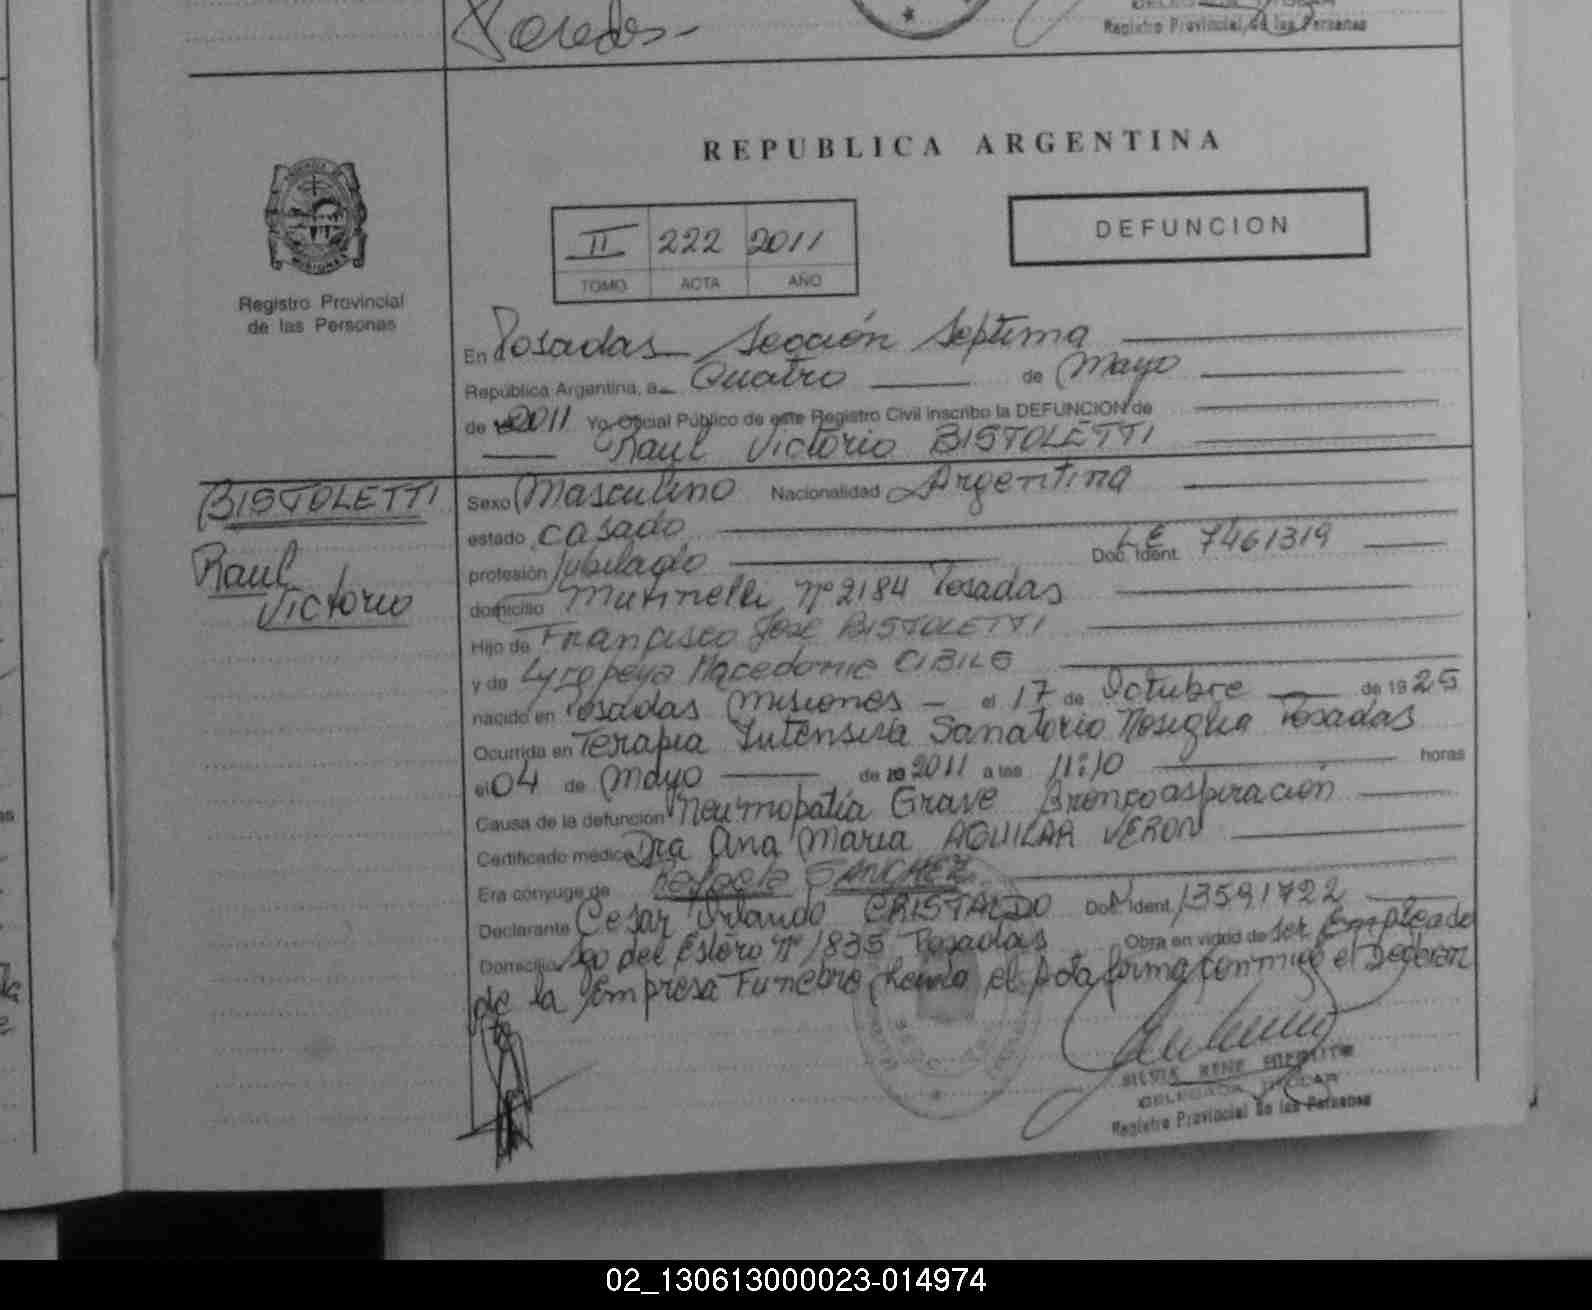 Paredes
Registro Provincial de las Personas
REPUBLICA ARGENTINA
MISIONES
Registro Provincial
de las Personas
II 222 2011
TOMO ACTA AÑO
DEFUNCION
En Posadas Sección Septima
República Argentina, a Cuatro de Mayo
de 2011 Yo, Oficial Público de este Registro Civil inscribo la DEFUNCION de
Raul Victorio BISTOLETTI
BISTOLETTI
Raul
Victorio
Sexo Masculino Nacionalidad Argentina
estado casado
profesión Jubilado Doc. Ident. LE 7461319
domicilio Nº 2184 Posadas
Hijo de Francisco José BISTOLETTI
y de Macedonia CIBILS
nacido en Posadas Misiones el 17 de Octubre de 1925
Ocurrida en Terapia Intensiva Sanatorio Nosiglia Posadas
el 04 de Mayo de 2011 a las 11:10 horas
Causa de la defunción Neumopatía Grave Broncoaspiración
Certificado médico Dra Ana Maria AGUILAR VERON
Era cónyuge de Rafaela SANCHEZ
Declarante Cesar Orlando CRISTALDO Doc. Ident. 13591722
Domicilio Sgo del Estero Nº 1835 Posadas Obra en virtud de ser Empleado
de la Empresa Funebre Leida el Acta firma conmigo el
SILVIA RENE
DELEGADA TITULAR
Registro Provincial de las Personas
02_130613000023-014974